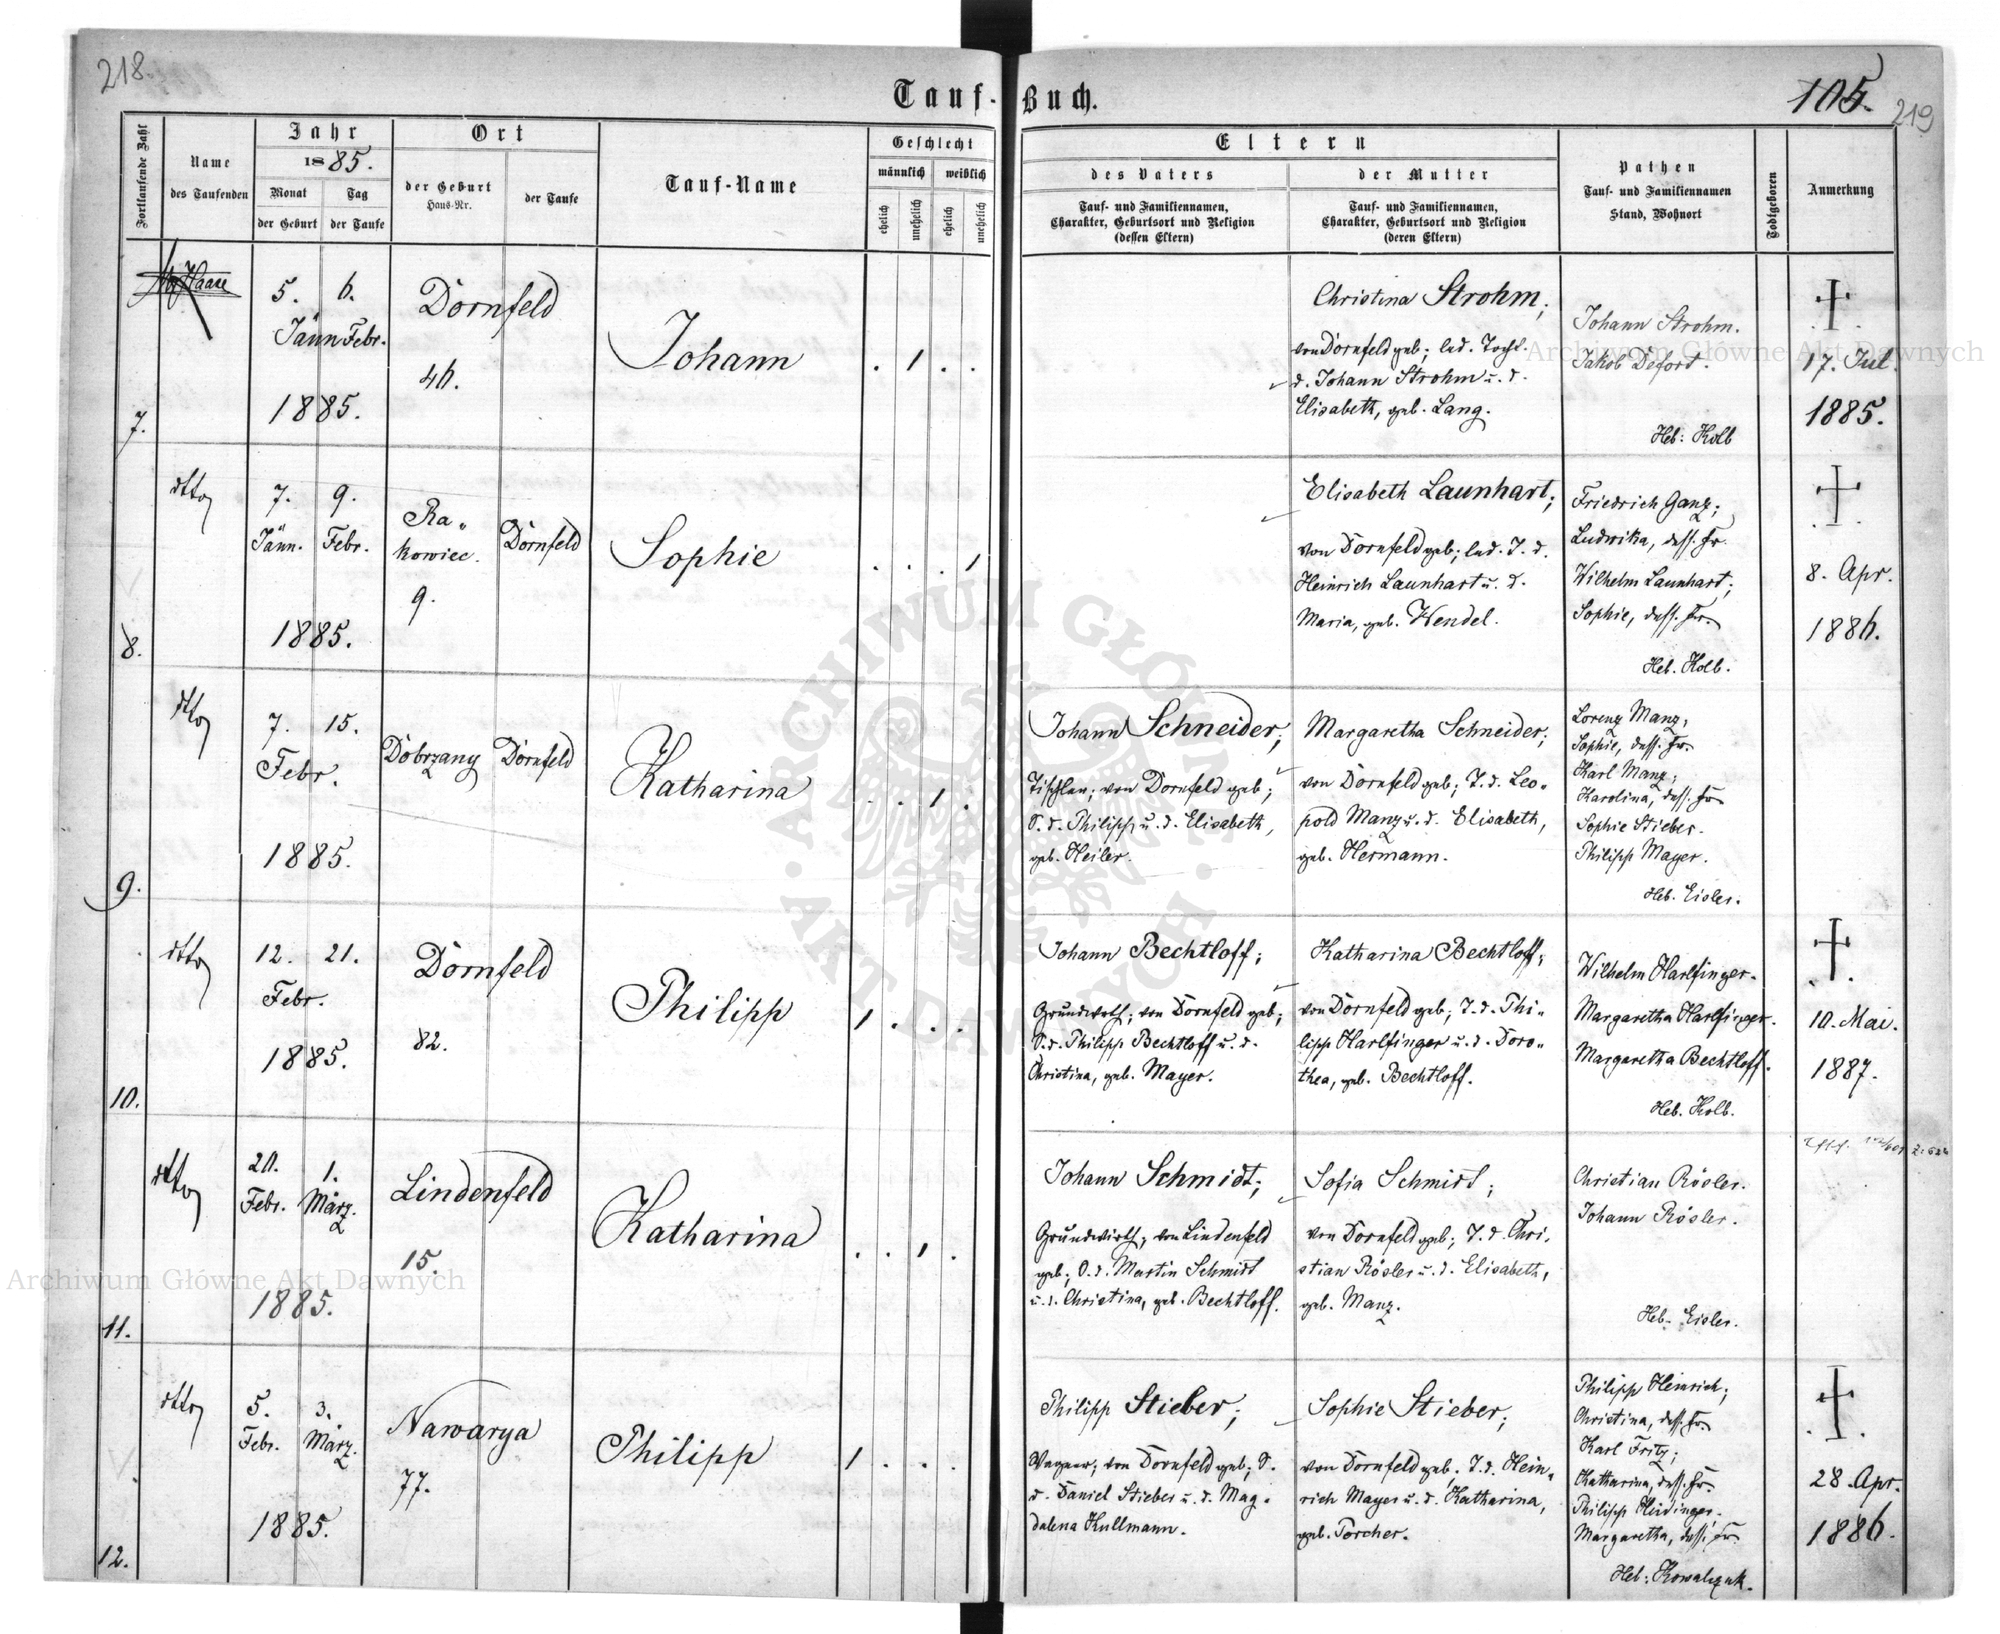 218.
Tauf-Buch.
105.
219
Fortlaufende Zahl
Name
des Taufenden
Jahr
1885.
Monat
Tag
der Geburt
der Taufe
Ort
der Geburt
Haus-Nr.
der Taufe
Tauf-Name
Geschlecht
männlich
weiblich
ehelich
unehelich
ehelich
unehelich
Eltern
des Vaters
Tauf- und Familiennamen,
Charakter, Geburtsort und Religion
(dessen Eltern)
der Mutter
Tauf- und Familiennamen,
Charakter, Geburtsort und Religion
(deren Eltern)
Pathen
Tauf- und Familiennamen
Stand, Wohnort
Todtgeboren
Anmerkung
7.
Haase
5. 6.
Jänn Febr.
1885.
Dornfeld
46.
Johann
. 1 . .
Christina Strohm;
von Dornfeld geb; led. Tocht.
d. Johann Strohm u. d.
Elisabeth, geb. Lang.
Johann Strohm.
Jakob Defort.
Heb: Kolb
17. Jul.
1885.
8.
dtto
7. 9.
Jänn. Febr.
1885.
Ra„
kowiec.
9.
Dornfeld
Sophie
. . . 1
Elisabeth Launhart;
von Dornfeld geb; led. T. d.
Heinrich Launhart u. d.
Maria, geb. Wendel.
Friedrich Ganz;
Ludwika, dess. Fr.
Wilhelm Launhart;
Sophie, dess. Fr.
Heb. Kolb.
8. Apr.
1886.
9.
dtto
7. 15.
Febr.
1885.
Dobrzany
Dornfeld
Katharina
. . 1 .
Johann Schneider;
Tischler; von Dornfeld geb;
S. d. Philipp u. d. Elisabeth,
geb. Heiler.
Margaretha Schneider;
von Dornfeld geb; T. d. Leo„
pold Manz u. d. Elisabeth,
geb. Hermann.
Lorenz Manz;
Sophie, dess. Fr.
Karl Manz;
Karolina, dess. Fr.
Sophie Stieber.
Philipp Mayer.
Heb. Eisler.
10.
dtto
12. 21.
Febr.
1885.
Dornfeld
82.
Philipp
1 . . .
Johann Bechtloff;
Grundwirth; von Dornfeld geb;
S. d. Philipp Bechtloff u. d.
Christina, geb. Mayer.
Katharina Bechtloff;
von Dornfeld geb; T. d. Phi„
lipp Harlfinger u. d. Doro„
thea, geb. Bechtloff.
Wilhelm Harlfinger.
Margaretha Harlfinger.
Margaretha Bechtloff.
Heb. Kolb.
10. Mai.
1887.
11.
dtto
20. 1.
Febr. März.
1885.
Lindenfeld
15.
Katharina
. . 1 .
Johann Schmidt;
Grundwirth; von Lindenfeld
geb; S. d. Martin Schmidt
u. d. Christina, geb. Bechtloff.
Sofia Schmidt;
von Dornfeld geb; T. d. Chri„
stian Rösler u. d. Elisabeth,
geb. Manz.
Christian Rösler.
Johann Rösler.
Heb. Eisler.
12.
dtto
5. 3.
Febr. März.
1885.
Nawarya
77.
Philipp
1 . . .
Philipp Stieber;
Wagner; von Dornfeld geb; S.
d. Daniel Stieber u. d. Mag„
dalena Kullmann.
Sophie Stieber;
von Dornfeld geb; T. d. Hein„
rich Mayer u. d. Katharina,
geb. Porcher.
Philipp Heinrich;
Christina, dess. Fr.
Karl Fritz;
Katharina, dess. Fr.
Philipp
Margaretha, dess. Fr.
Heb: Kowalczuk.
28. Apr.
1886.
Archiwum Główne Akt Dawnych
Archiwum Główne Akt Dawnych
ARCHIWUM GŁÓWNE
AKT DAWNYCH